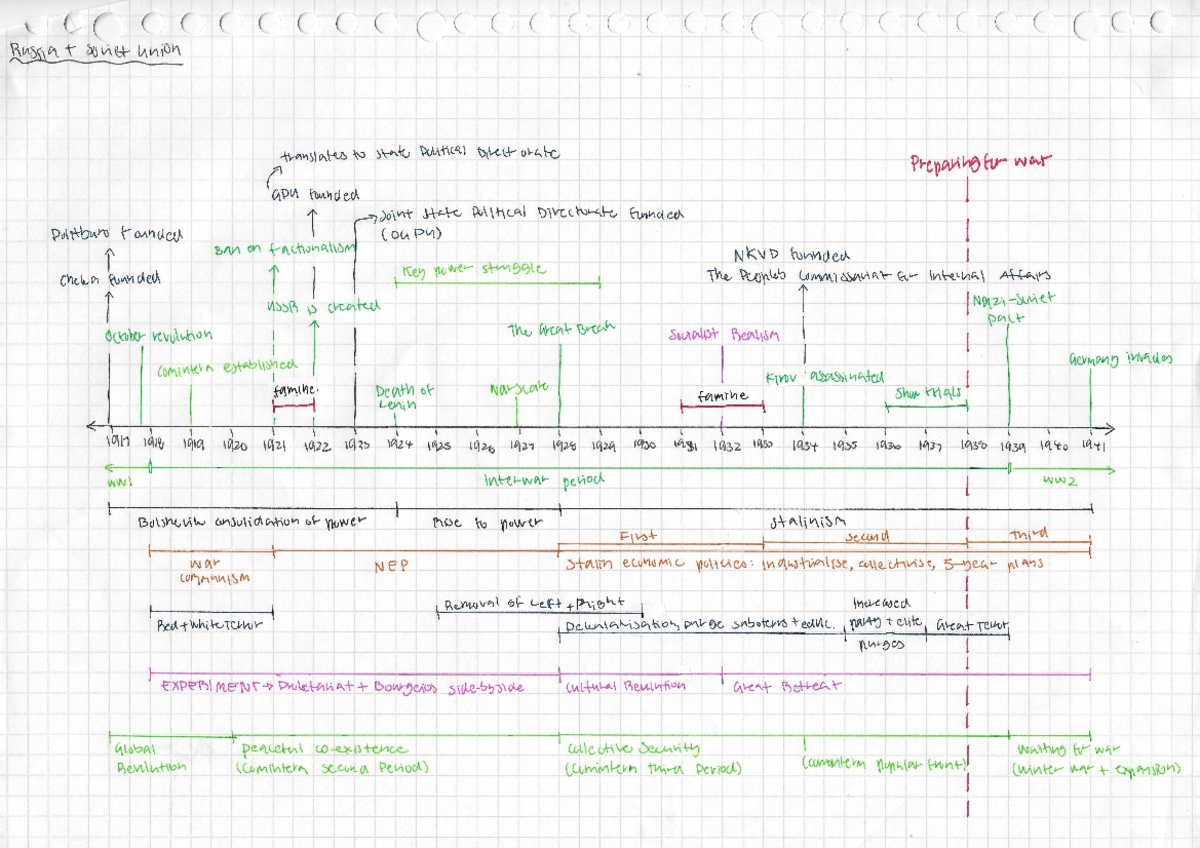 Russia + Soviet Union
translates to State Political Directorate
Preparing for war
GPU founded
Joint State Political Directorate Founded
(OGPU)
Politburo Founded
Ban on factionalism
NKVD founded
Key power struggle
Cheka founded
The People's Commissariat for Internal Affairs
USSR is created
Nazi-Soviet
pact
October revolution
The Great Break
Socialist Realism
Comintern established
Germany invades
famine.
Death of
Lenin
famine
Kirov assassinated
Show trials
1917 1918 1919 1920 1921 1922 1923 1924 1925 1926 1927 1928 1929 1930 1931 1932 1933 1934 1935 1936 1937 1938 1939 1940 1941
WW1
Interwar period
WW2
Bolshevik consolidation of power
Rise to power
Stalinism
First
second
third
War
Communism
NEP
Stalin economic policies: industrialise, collectivise, 5-year plans
Red + White Terror
Removal of Left + Right
Dekulakisation, purge saboters + educ.
Increased
party + elite
purges
Great Terror
EXPERIMENT → Proletariat + Bourgeois side-by-side
Cultural Revolution
Great Retreat
Global
Revolution
peaceful co-existence
(Comintern second Period)
Collective Security
(Comintern third Period)
(Comintern popular front)
Waiting for war
(winter war + expansion)